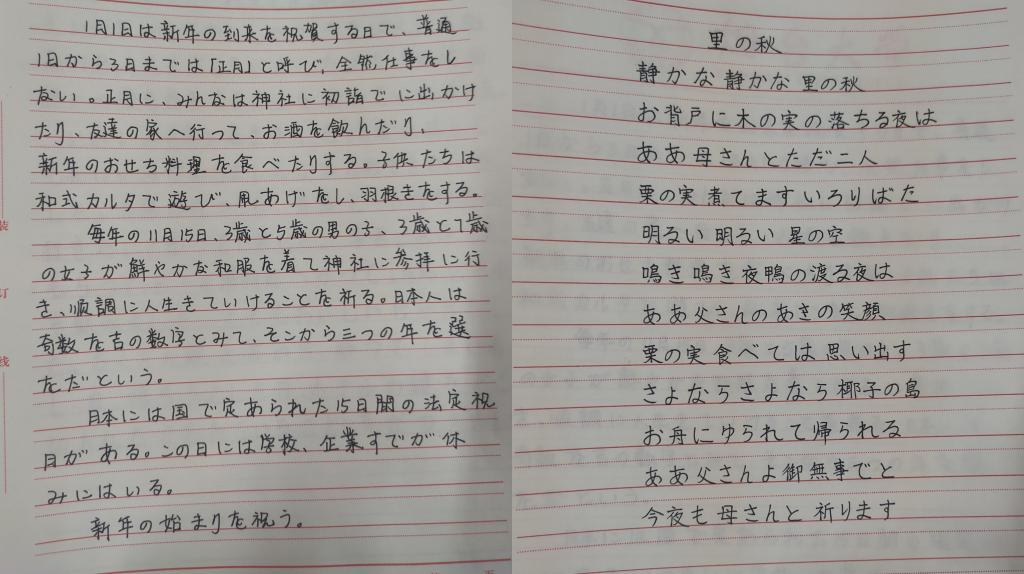 1月1日は新年の到来を祝賀する日で、普通
1日から3日までは「正月」と呼び、全然仕事をし
ない。正月に、みんなは神社に初詣でに出かけ
たり、友達の家へ行って、お酒を飲んだり、
新年のおせち料理を食べたりする。子供たちは
和式カルタで遊び、凧あげをし、羽根きをする。
毎年の11月15日、3歳と5歳の男の子、3歳と7歳
の女子が鮮やかな和服を着て神社に参拝に行
き、順調に人生きていけることを祈る。日本人は
奇数を吉の数字とみて、そこから三つの年を選
なだという。
日本には国で定あられた15日間の法定祝
日がある。この日には学校、企業すでが休
みにはいる。
新年の始まりを祝う。
里の秋
静かな静かな里の秋
お背戸に木の実の落ちる夜は
ああ母さんとただ二人
栗の実煮てますいろりばた
明るい明るい星の空
鳴き鳴き夜鴨の渡る夜は
ああ父さんのあきの笑顔
栗の実食べては思い出す
さよならさよなら椰子の島
お舟にゆられて帰られる
ああ父さんよ御無事でと
今夜も母さんと祈ります
装
订
线